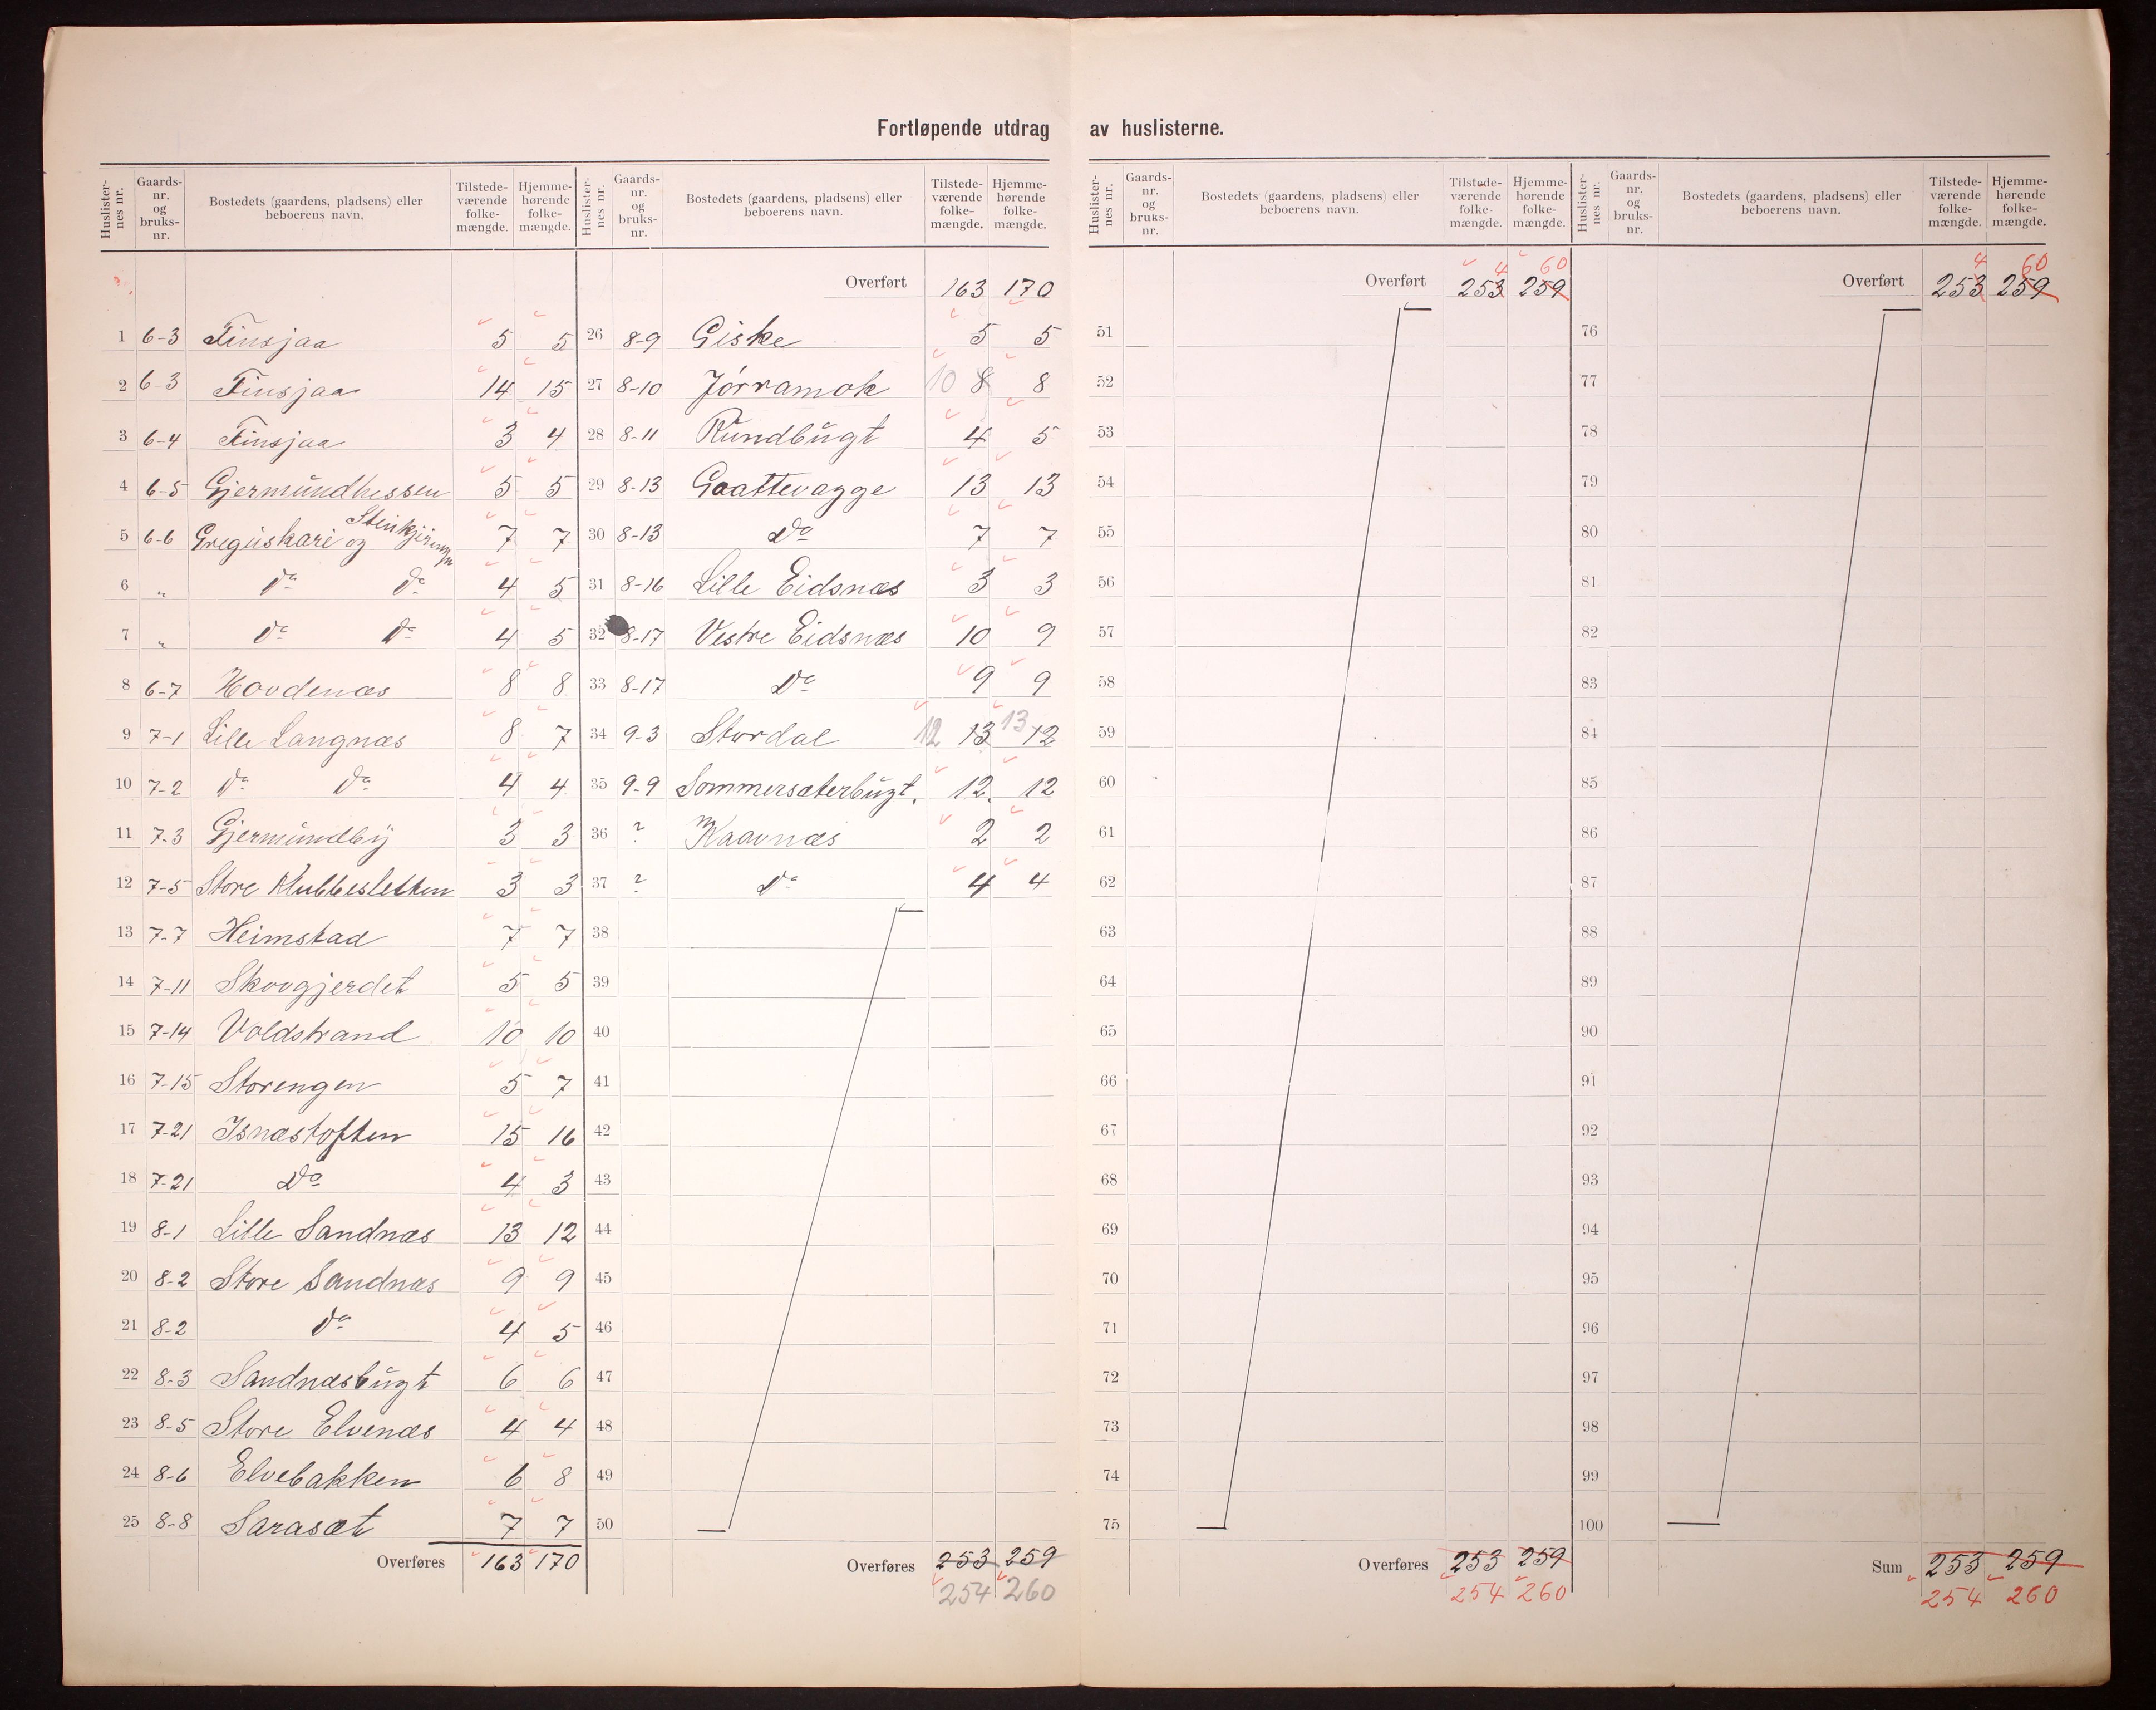 Fortløpende utdrag av huslisterne.
Huslister-nes nr. | Gaards-nr. og bruks-nr. | Bostedets (gaardens, pladsens) eller beboerens navn. | Tilstede-værende folke-mængde. | Hjemme-hørende folke-mængde.
1 6-3 Finsjaa 5 5
2 6-3 Finsjaa 14 15
3 6-4 Finsjaa 3 4
4 6-5 Gjermundhessen 5 5
5 6-6 Greguskari og Steinkjeringn 7 7
6 " do do 4 5
7 " do do 4 5
8 6-7 Hovdenæs 8 8
9 7-1 Lille Langnæs 8 7
10 7-2 do do 4 4
11 7-3 Gjermundby 3 3
12 7-5 Store Klubbesletten 3 3
13 7-7 Heimstad 7 7
14 7-11 Skovgjerdet 5 5
15 7-14 Voldstrand 10 10
16 7-15 Storengen 5 7
17 7-21 Isnæstoften 15 16
18 7-21 Do 4 3
19 8-1 Lille Sandnæs 13 12
20 8-2 Store Sandnæs 9 9
21 8-2 do 4 5
22 8-3 Sandnæsbugt 6 6
23 8-5 Store Elvenæs 4 4
24 8-6 Elvebakken 6 8
25 8-8 Sarasæt 7 7
Overføres 163 170
Huslister-nes nr. | Gaards-nr. og bruks-nr. | Bostedets (gaardens, pladsens) eller beboerens navn. | Tilstede-værende folke-mængde. | Hjemme-hørende folke-mængde.
Overført 163 170
26 8-9 Giske 5 5
27 8-10 Jørramok 10 8 8
28 8-11 Rundbugt 4 5
29 8-13 Gaattevagge 13 13
30 8-13 Do 7 7
31 8-16 Lille Eidsnæs 3 3
32 8-17 Vestre Eidsnæs 10 9
33 8-17 Do 9 9
34 9-3 Stordal 12 13 13 12
35 9-9 Sommersæterbugt. 12. 12
36 ? Kaavnæs 2 2
37 ? do 4 4
38
39
40
41
42
43
44
45
46
47
48
49
50
Overføres 253 259
254 260
Huslister-nes nr. | Gaards-nr. og bruks-nr. | Bostedets (gaardens, pladsens) eller beboerens navn. | Tilstede-værende folke-mængde. | Hjemme-hørende folke-mængde.
4 60
Overført 253 259
51
52
53
54
55
56
57
58
59
60
61
62
63
64
65
66
67
68
69
70
71
72
73
74
75
Overføres 253 259
254 260
Huslister-nes nr. | Gaards-nr. og bruks-nr. | Bostedets (gaardens, pladsens) eller beboerens navn. | Tilstede-værende folke-mængde. | Hjemme-hørende folke-mængde.
4 60
Overført 253 259
76
77
78
79
80
81
82
83
84
85
86
87
88
89
90
91
92
93
94
95
96
97
98
99
100
Sum 253 259
254 260